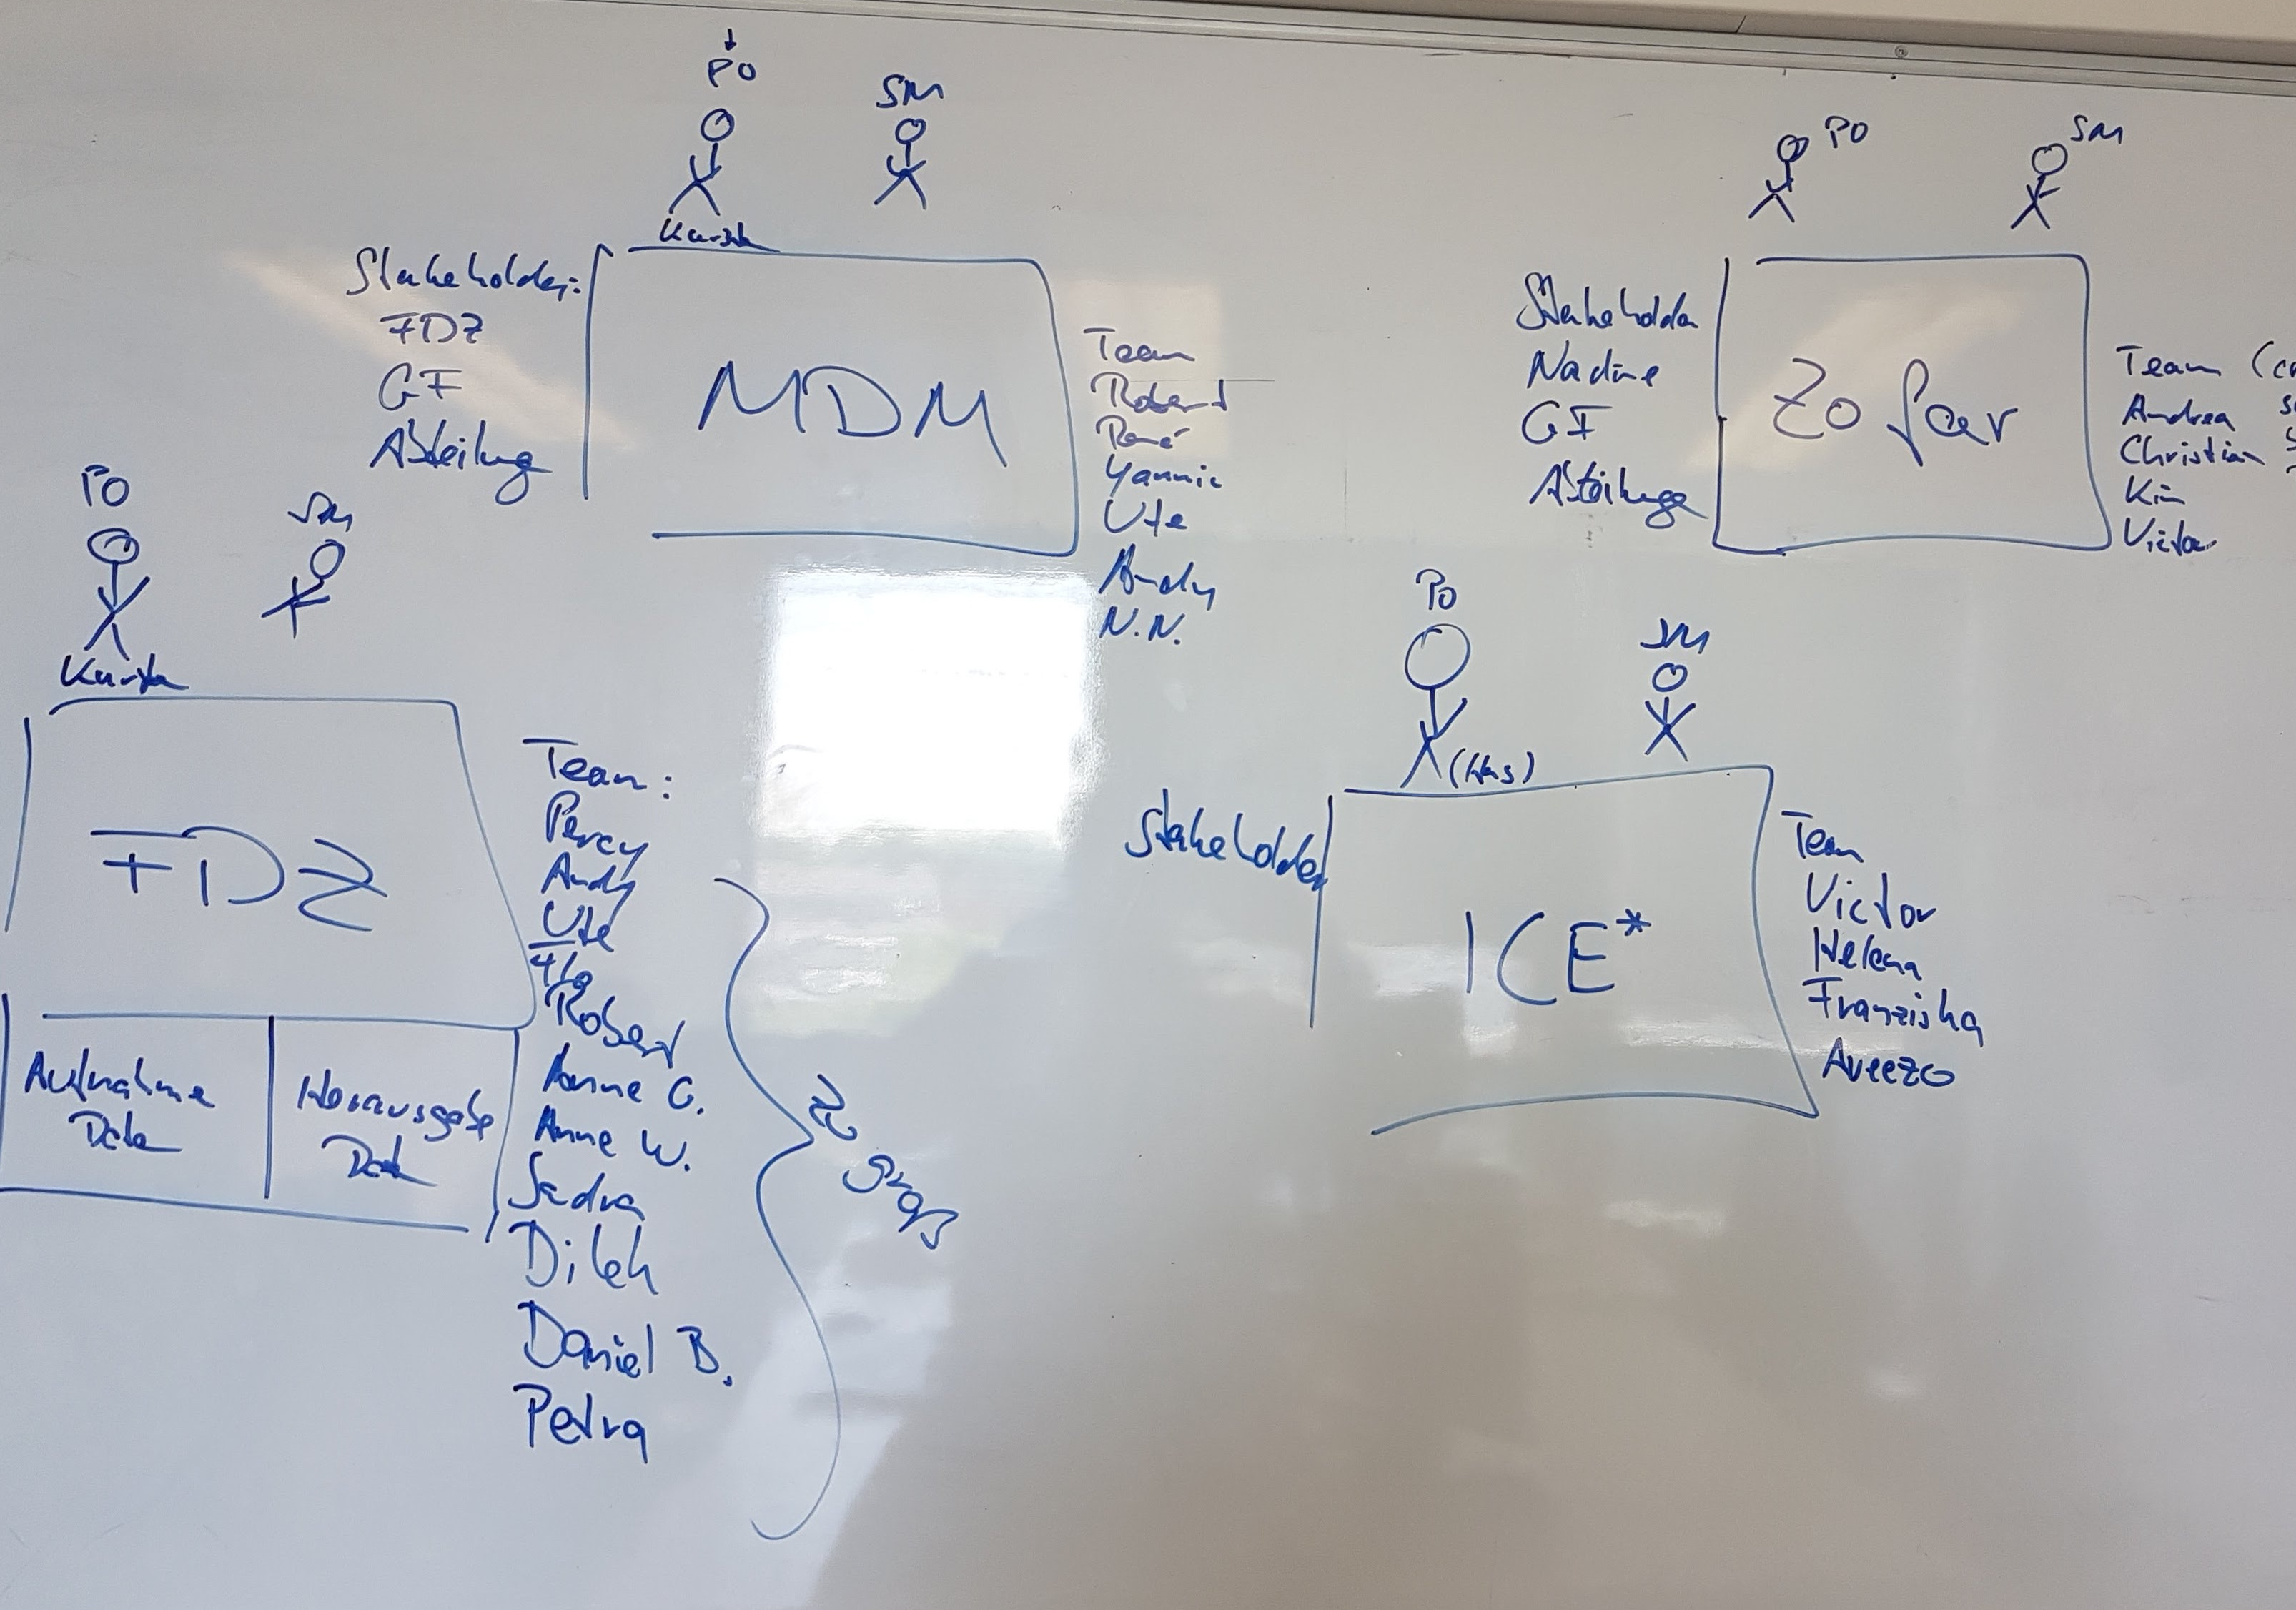 PO
SM
Karsten
Stakeholder:
FDZ
GF
Abteilung
MDM
Team
Robert
René
Yannic
Ute
Andy
N.N.
PO
SM
Stakeholder
Nadine
GF
Zofar
Team
Andrea
Christian
Kim
Victor
PO
SM
Karsten
FDZ
Aufnahme
Daten
Herausgabe
Daten
Team:
Percy
Andy
Ute
Flo
Robert
Anne G.
Anne W.
Dilek
Daniel B.
Petra
zu groß
PO
SM
Stakeholder
ICE*
Team
Victor
Helena
Franziska